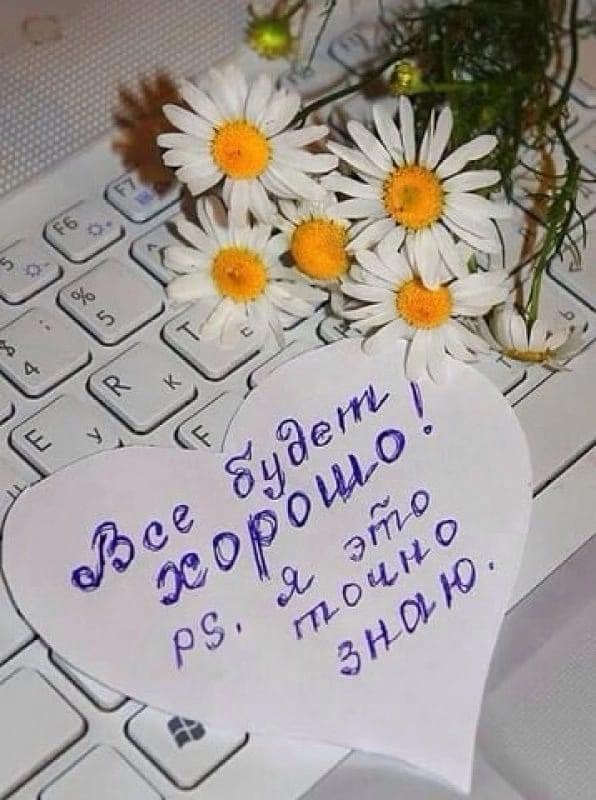 F7
F6
5
%
5
$ ;
4
R К
Т Е
Е У
F
Все будет
хорошо!
PS. я это
точно
знаю.